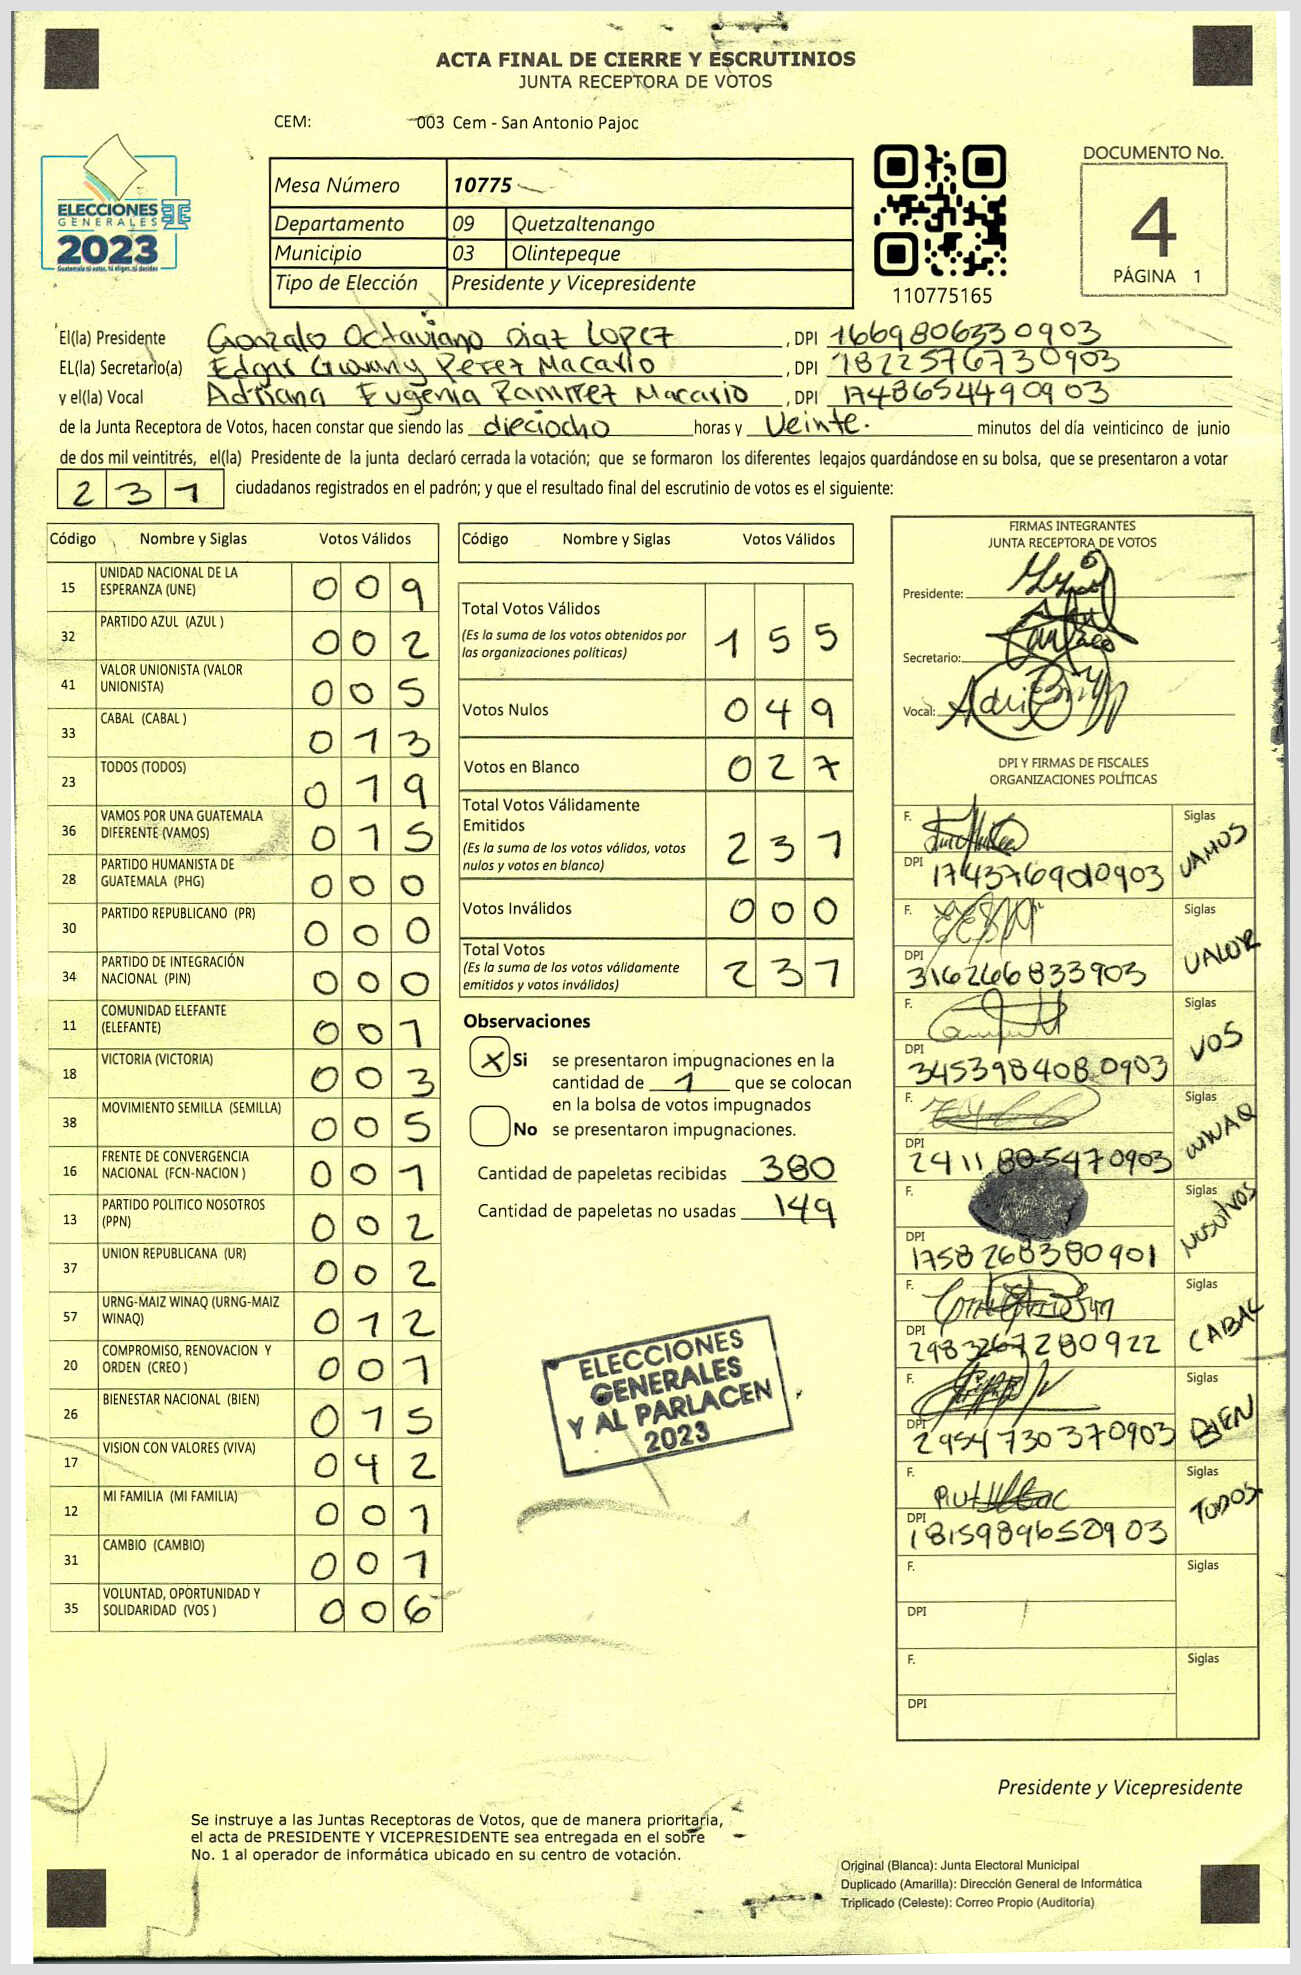 ACTA FINAL DE CIERRE Y ESCRUTINIOS
JUNTA RECEPTORA DE VOTOS
CEM: 003 Cem - San Antonio Pajoc
ELECCIONES
GENERALES
2023
Guatemala tú votas, tú eliges, tú decides
Mesa Número 10775
Departamento 09 Quetzaltenango
Municipio 03 Olintepeque
Tipo de Elección Presidente y Vicepresidente
110775165
DOCUMENTO No.
4
PÁGINA 1
El(la) Presidente Gonzalo Octaviano Diaz Lopez, DPI 1669806330903
EL(la) Secretario(a) Edgar Giovany Perez Macario, DPI 1822576730903
y el(la) Vocal Adriana Eugenia Ramirez Macario, DPI 1748654490903
de la Junta Receptora de Votos, hacen constar que siendo las dieciocho horas y Veinte. minutos del día veinticinco de junio
de dos mil veintitrés, el(la) Presidente de la junta declaró cerrada la votación; que se formaron los diferentes legajos guardándose en su bolsa, que se presentaron a votar
231 ciudadanos registrados en el padrón; y que el resultado final del escrutinio de votos es el siguiente:
Código Nombre y Siglas Votos Válidos
15 UNIDAD NACIONAL DE LA ESPERANZA (UNE) 009
32 PARTIDO AZUL (AZUL ) 002
41 VALOR UNIONISTA (VALOR UNIONISTA) 005
33 CABAL (CABAL ) 013
23 TODOS (TODOS) 019
36 VAMOS POR UNA GUATEMALA DIFERENTE (VAMOS) 015
28 PARTIDO HUMANISTA DE GUATEMALA (PHG) 000
30 PARTIDO REPUBLICANO (PR) 000
34 PARTIDO DE INTEGRACIÓN NACIONAL (PIN) 000
11 COMUNIDAD ELEFANTE (ELEFANTE) 001
18 VICTORIA (VICTORIA) 003
38 MOVIMIENTO SEMILLA (SEMILLA) 005
16 FRENTE DE CONVERGENCIA NACIONAL (FCN-NACION ) 001
13 PARTIDO POLITICO NOSOTROS (PPN) 002
37 UNION REPUBLICANA (UR) 002
57 URNG-MAIZ WINAQ (URNG-MAIZ WINAQ) 012
20 COMPROMISO, RENOVACION Y ORDEN (CREO ) 001
26 BIENESTAR NACIONAL (BIEN) 015
17 VISION CON VALORES (VIVA) 042
12 MI FAMILIA (MI FAMILIA) 001
31 CAMBIO (CAMBIO) 001
35 VOLUNTAD, OPORTUNIDAD Y SOLIDARIDAD (VOS ) 006
Código Nombre y Siglas Votos Válidos
Total Votos Válidos 155
(Es la suma de los votos obtenidos por
las organizaciones políticas)
Votos Nulos 049
Votos en Blanco 027
Total Votos Válidamente
Emitidos 231
(Es la suma de los votos válidos, votos
nulos y votos en blanco)
Votos Inválidos 000
Total Votos 231
(Es la suma de los votos válidamente
emitidos y votos inválidos)
Observaciones
X Si se presentaron impugnaciones en la
cantidad de 1 que se colocan
en la bolsa de votos impugnados
No se presentaron impugnaciones.
Cantidad de papeletas recibidas 380
Cantidad de papeletas no usadas 149
ELECCIONES
GENERALES
Y AL PARLACEN
2023
FIRMAS INTEGRANTES
JUNTA RECEPTORA DE VOTOS
Presidente:
Secretario:
Vocal:
DPI Y FIRMAS DE FISCALES
ORGANIZACIONES POLÍTICAS
F. Siglas VAMOS
DPI 1743769010903
F. Siglas VALOR
DPI 316266833903
F. Siglas VOS
DPI 3453984080903
F. Siglas WINAQ
DPI 2411805470903
F. Siglas NOSOTVOS
DPI 1758268380901
F. Siglas CABAL
DPI 2983267280922
F. Siglas BIEN
DPI 2954730370903
F. Siglas TODOS
DPI 1815989650903
F. Siglas
DPI
F. Siglas
DPI
Presidente y Vicepresidente
Se instruye a las Juntas Receptoras de Votos, que de manera prioritaria,
el acta de PRESIDENTE Y VICEPRESIDENTE sea entregada en el sobre
No. 1 al operador de informática ubicado en su centro de votación.
Original (Blanca): Junta Electoral Municipal
Duplicado (Amarilla): Dirección General de Informática
Triplicado (Celeste): Correo Propio (Auditoría)